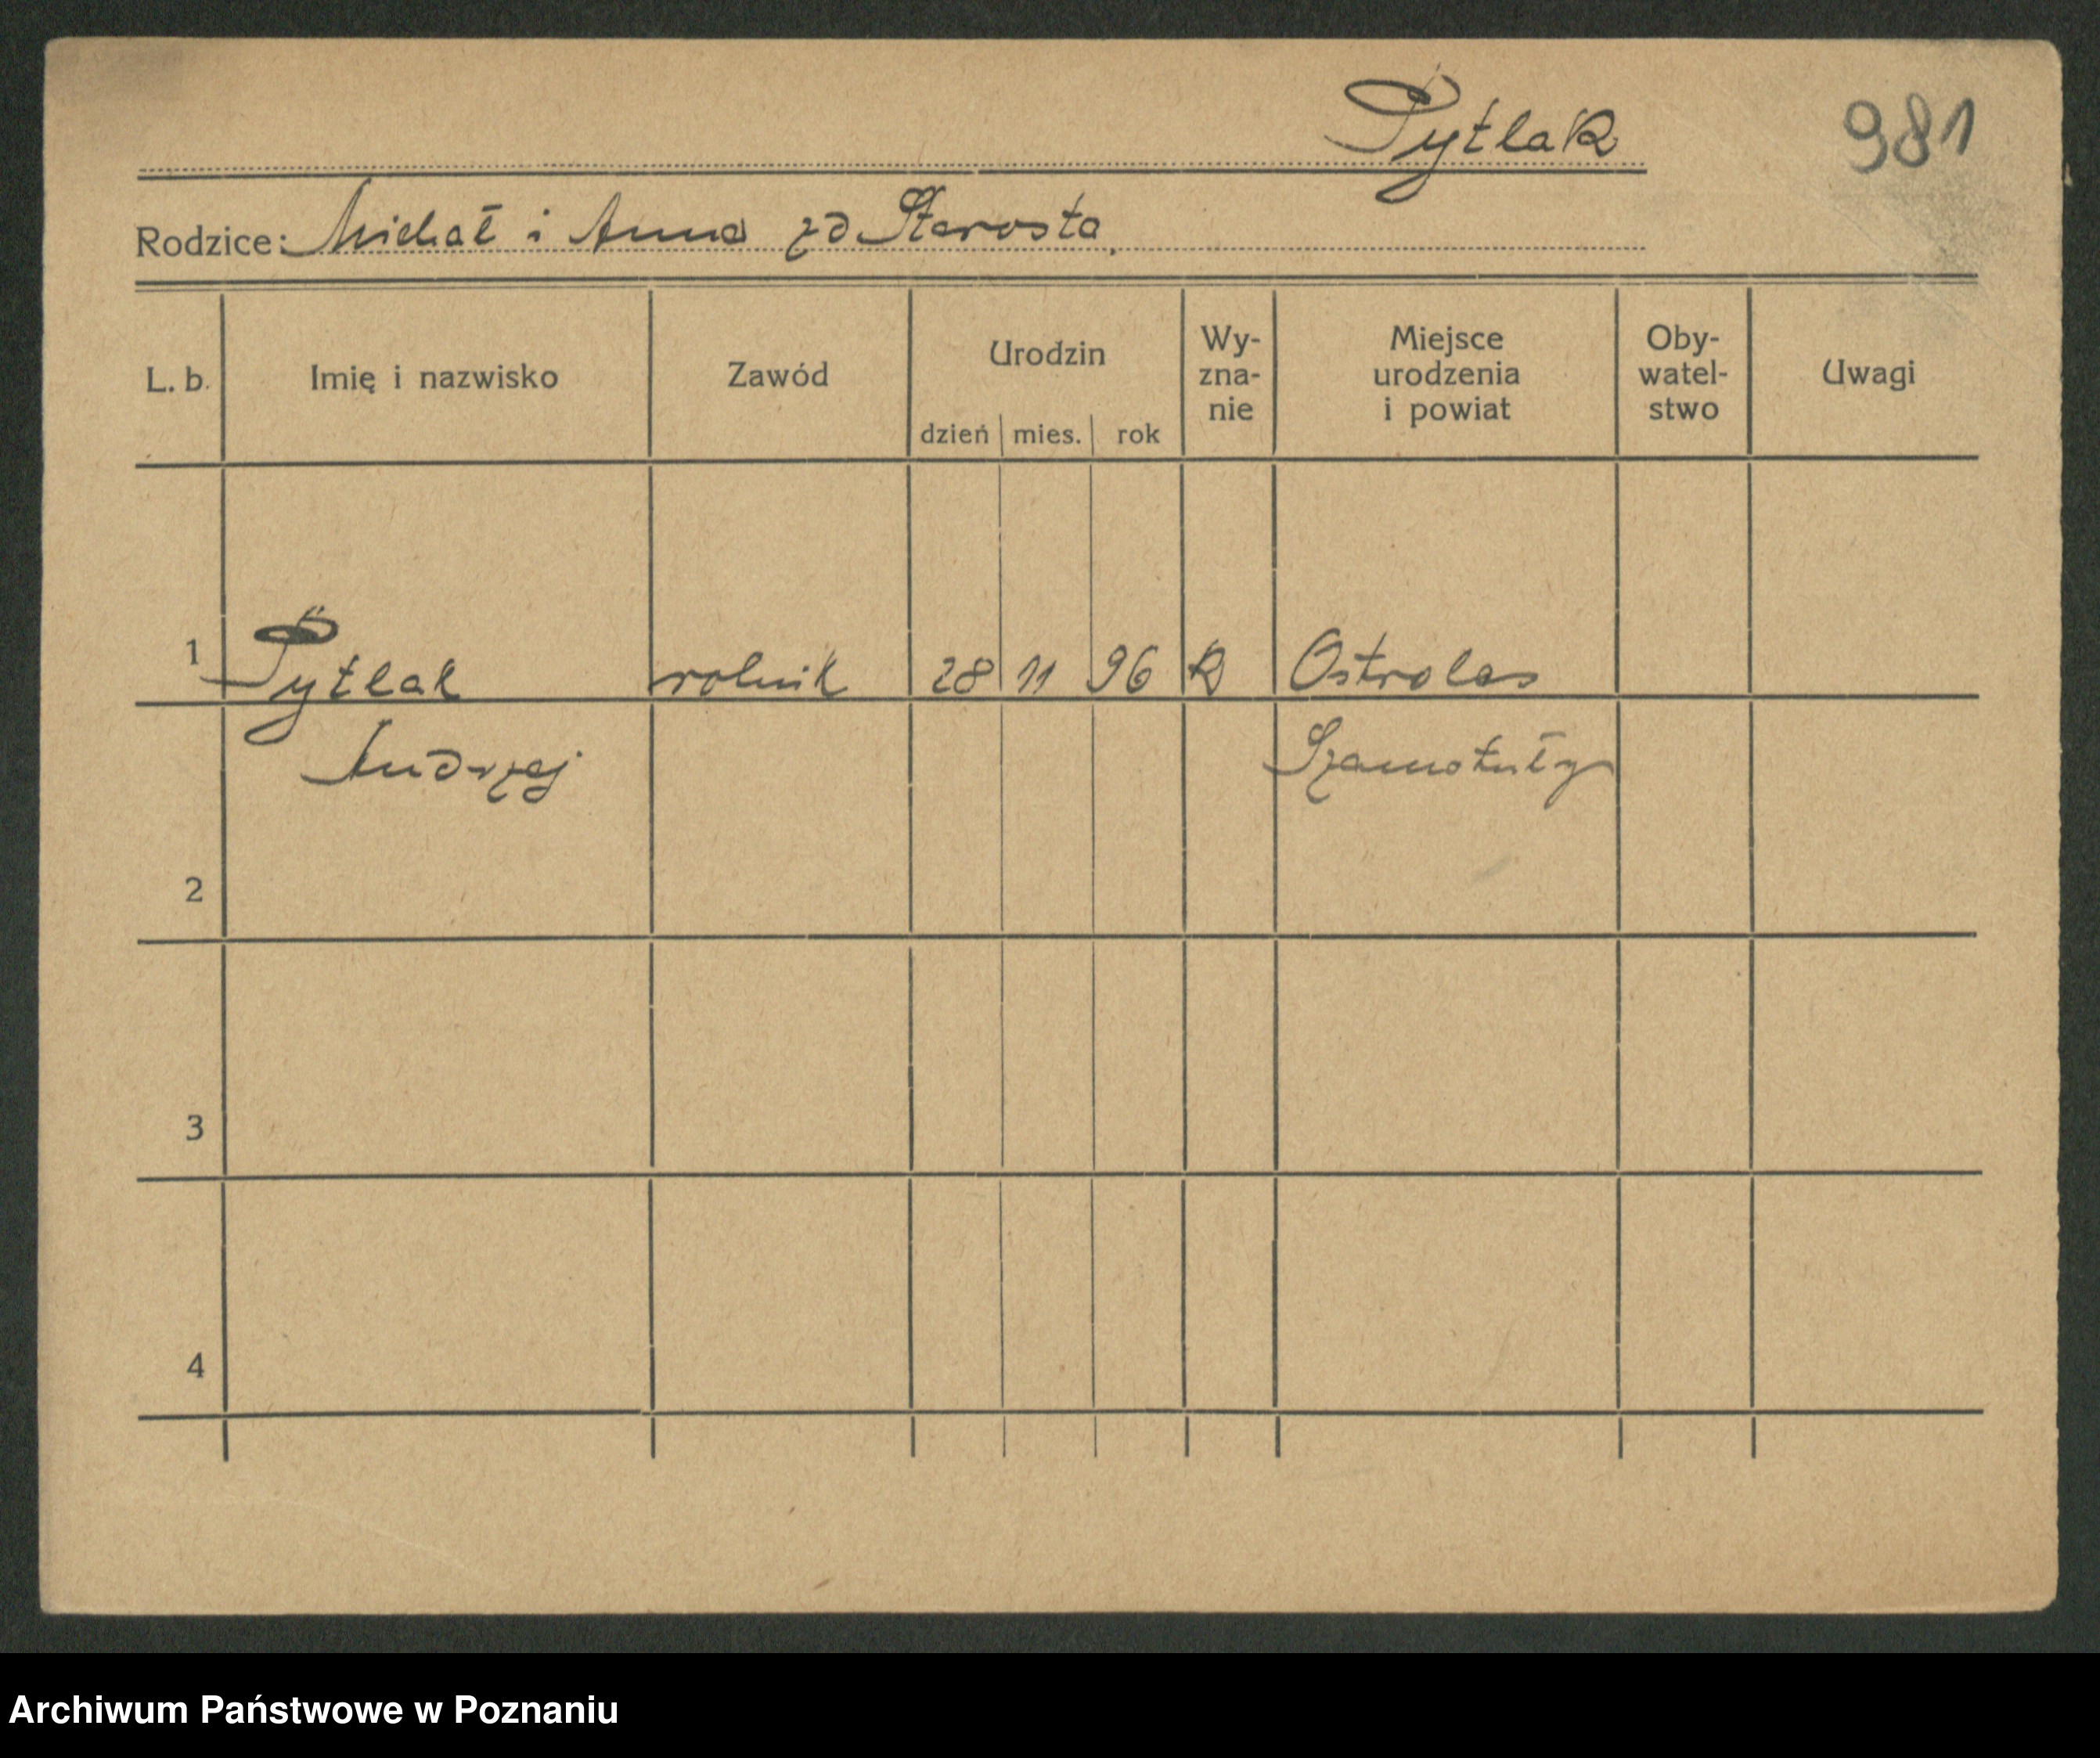 Pytlak
981
Rodzice: Michał i Anna zd Starosta.
L. b. Imię i nazwisko Zawód Urodzin dzień mies. rok Wy-zna-nie Miejsce urodzenia i powiat Oby-watel-stwo Uwagi
1 Pytlak rolnik 28 11 96 R Ostrolas
Andrzej Szamotuły
2
3
4
Archiwum Państwowe w Poznaniu